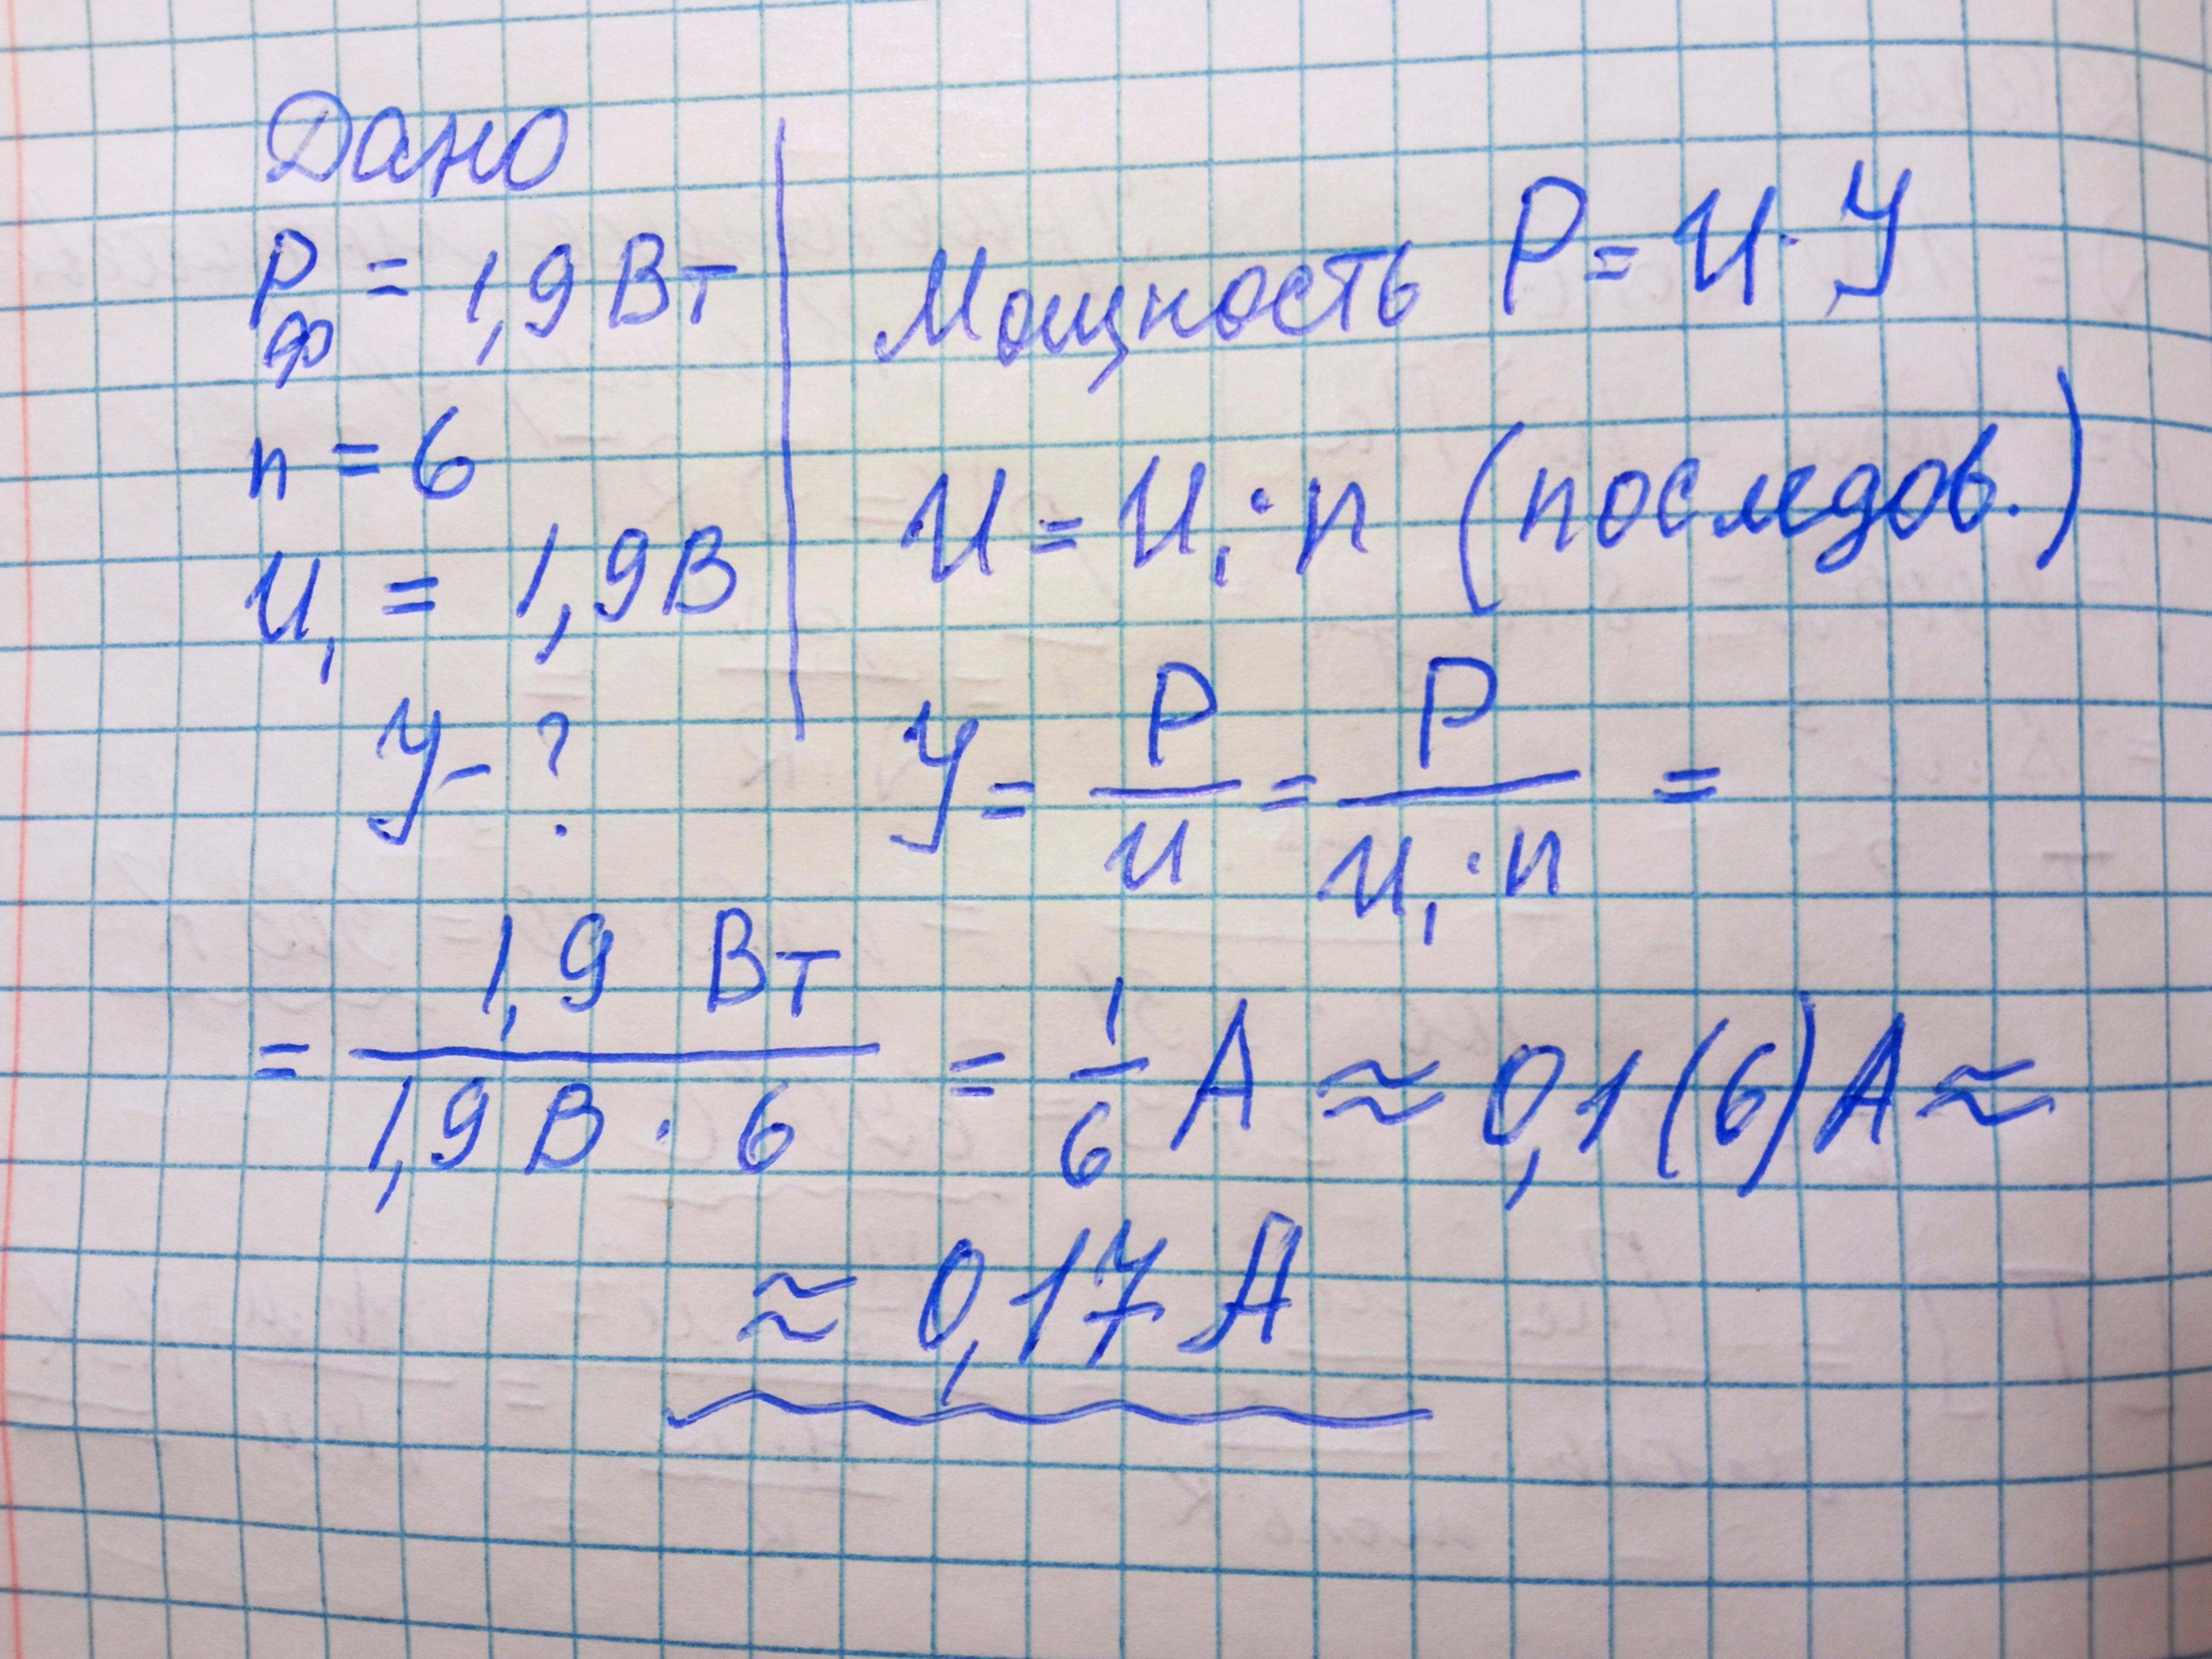 Дано
Pф = 1,9 Вт
n = 6
U₁ = 1,9 В
У - ?
Мощность P = U · У
U = U₁ · n (послед​ов.)
У = P/U = P/(U₁ · n) =
= 1,9 Вт/(1,9 В · 6) = 1/6 А ≈ 0,1(6) А ≈
≈ 0,17 А